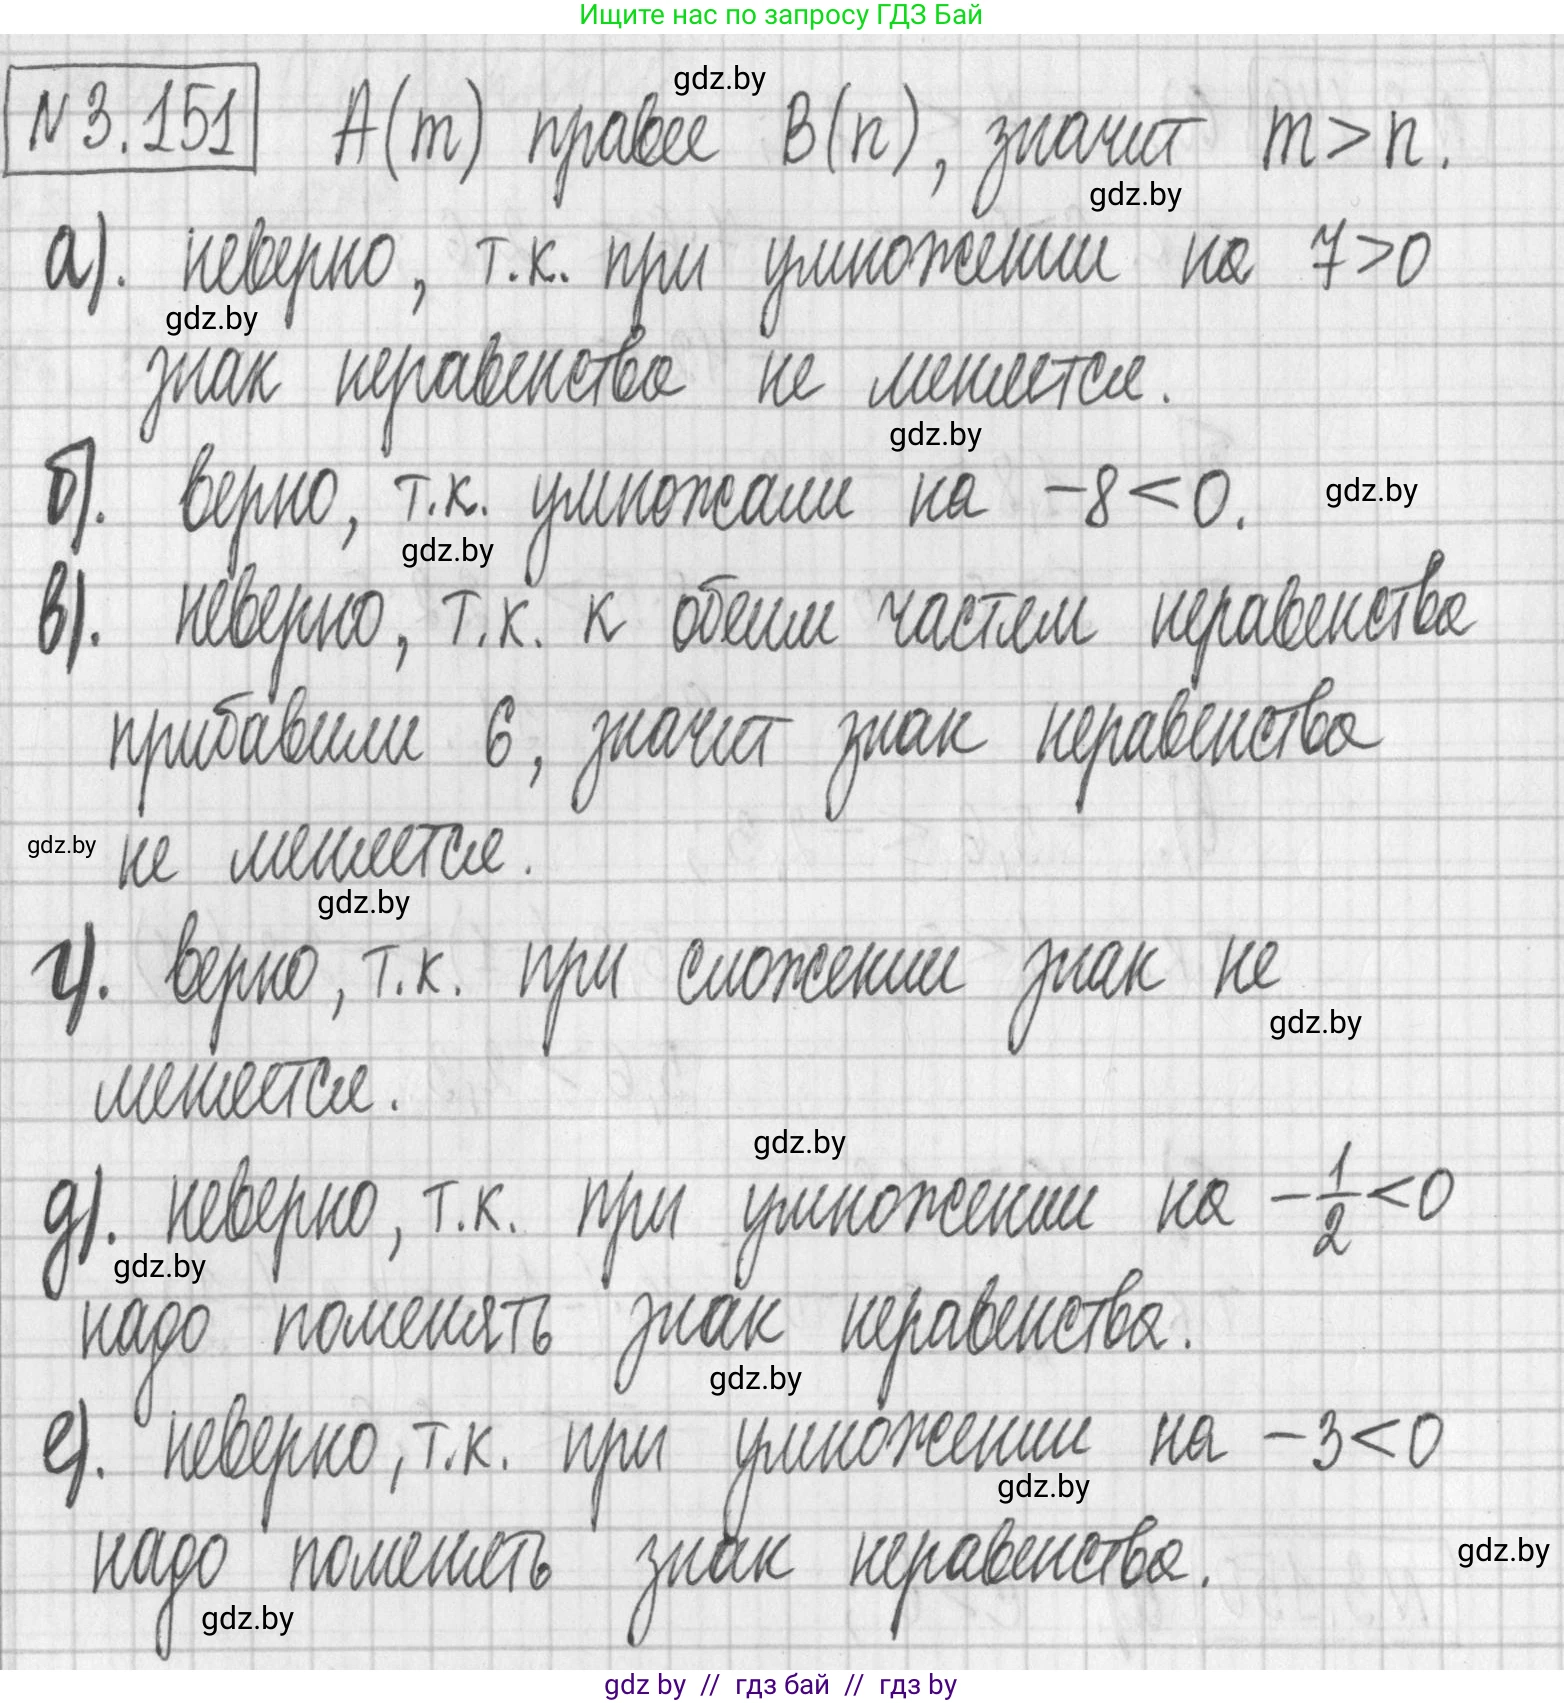 Ищите нас по запросу ГДЗ Бай
gdz.by
№3.151 A(m) правее B(n), значит m>n.
gdz.by
а). неверно, т.к. при умножении на 7>0
gdz.by
знак неравенства не меняется.
gdz.by
б). верно, т.к. умножали на -8<0.
gdz.by
gdz.by
в). неверно, т.к. к обеим частям неравенства
прибавили 6, значит знак неравенства
gdz.by
не меняется.
gdz.by
г). верно, т.к. при сложении знак не
gdz.by
меняется.
gdz.by
д). неверно, т.к. при умножении на -1/2<0
gdz.by
надо поменять знак неравенства.
gdz.by
е). неверно, т.к. при умножении на -3<0
gdz.by
надо поменять знак неравенства.
gdz.by
gdz.by
gdz by // гдз бай // гдз by